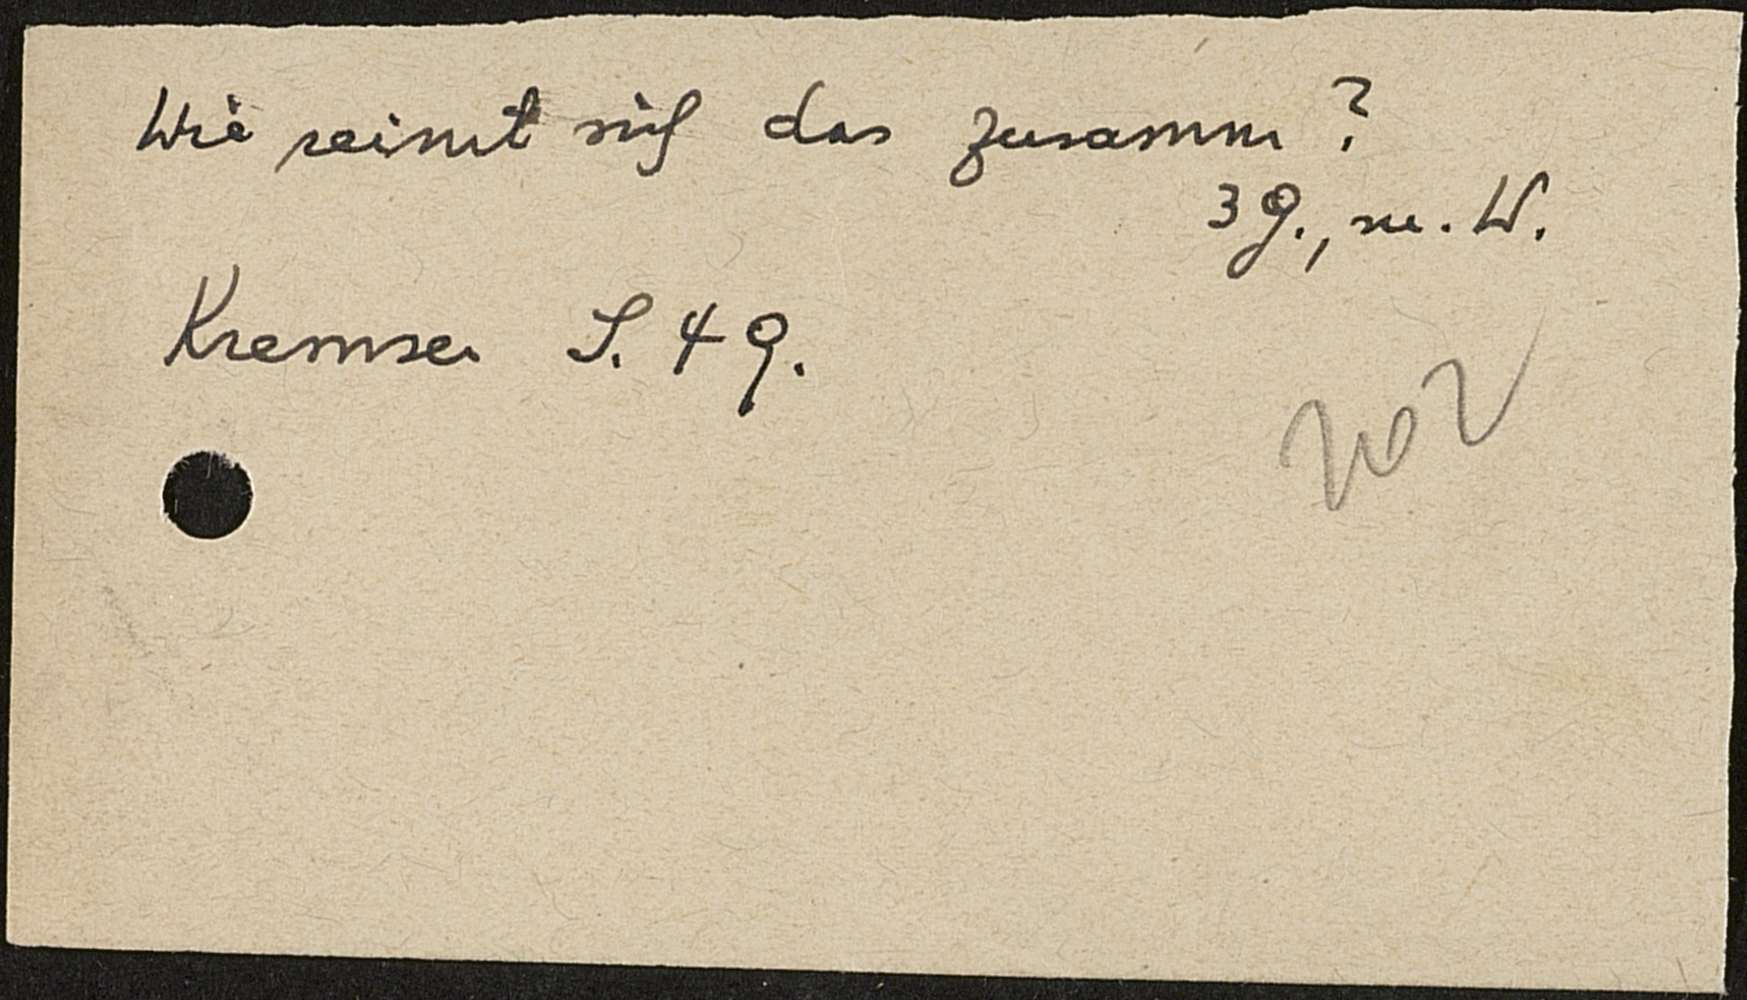 Wie reimt sich das zusammen?
3 G., m. W.
Kremser S. 49.
202